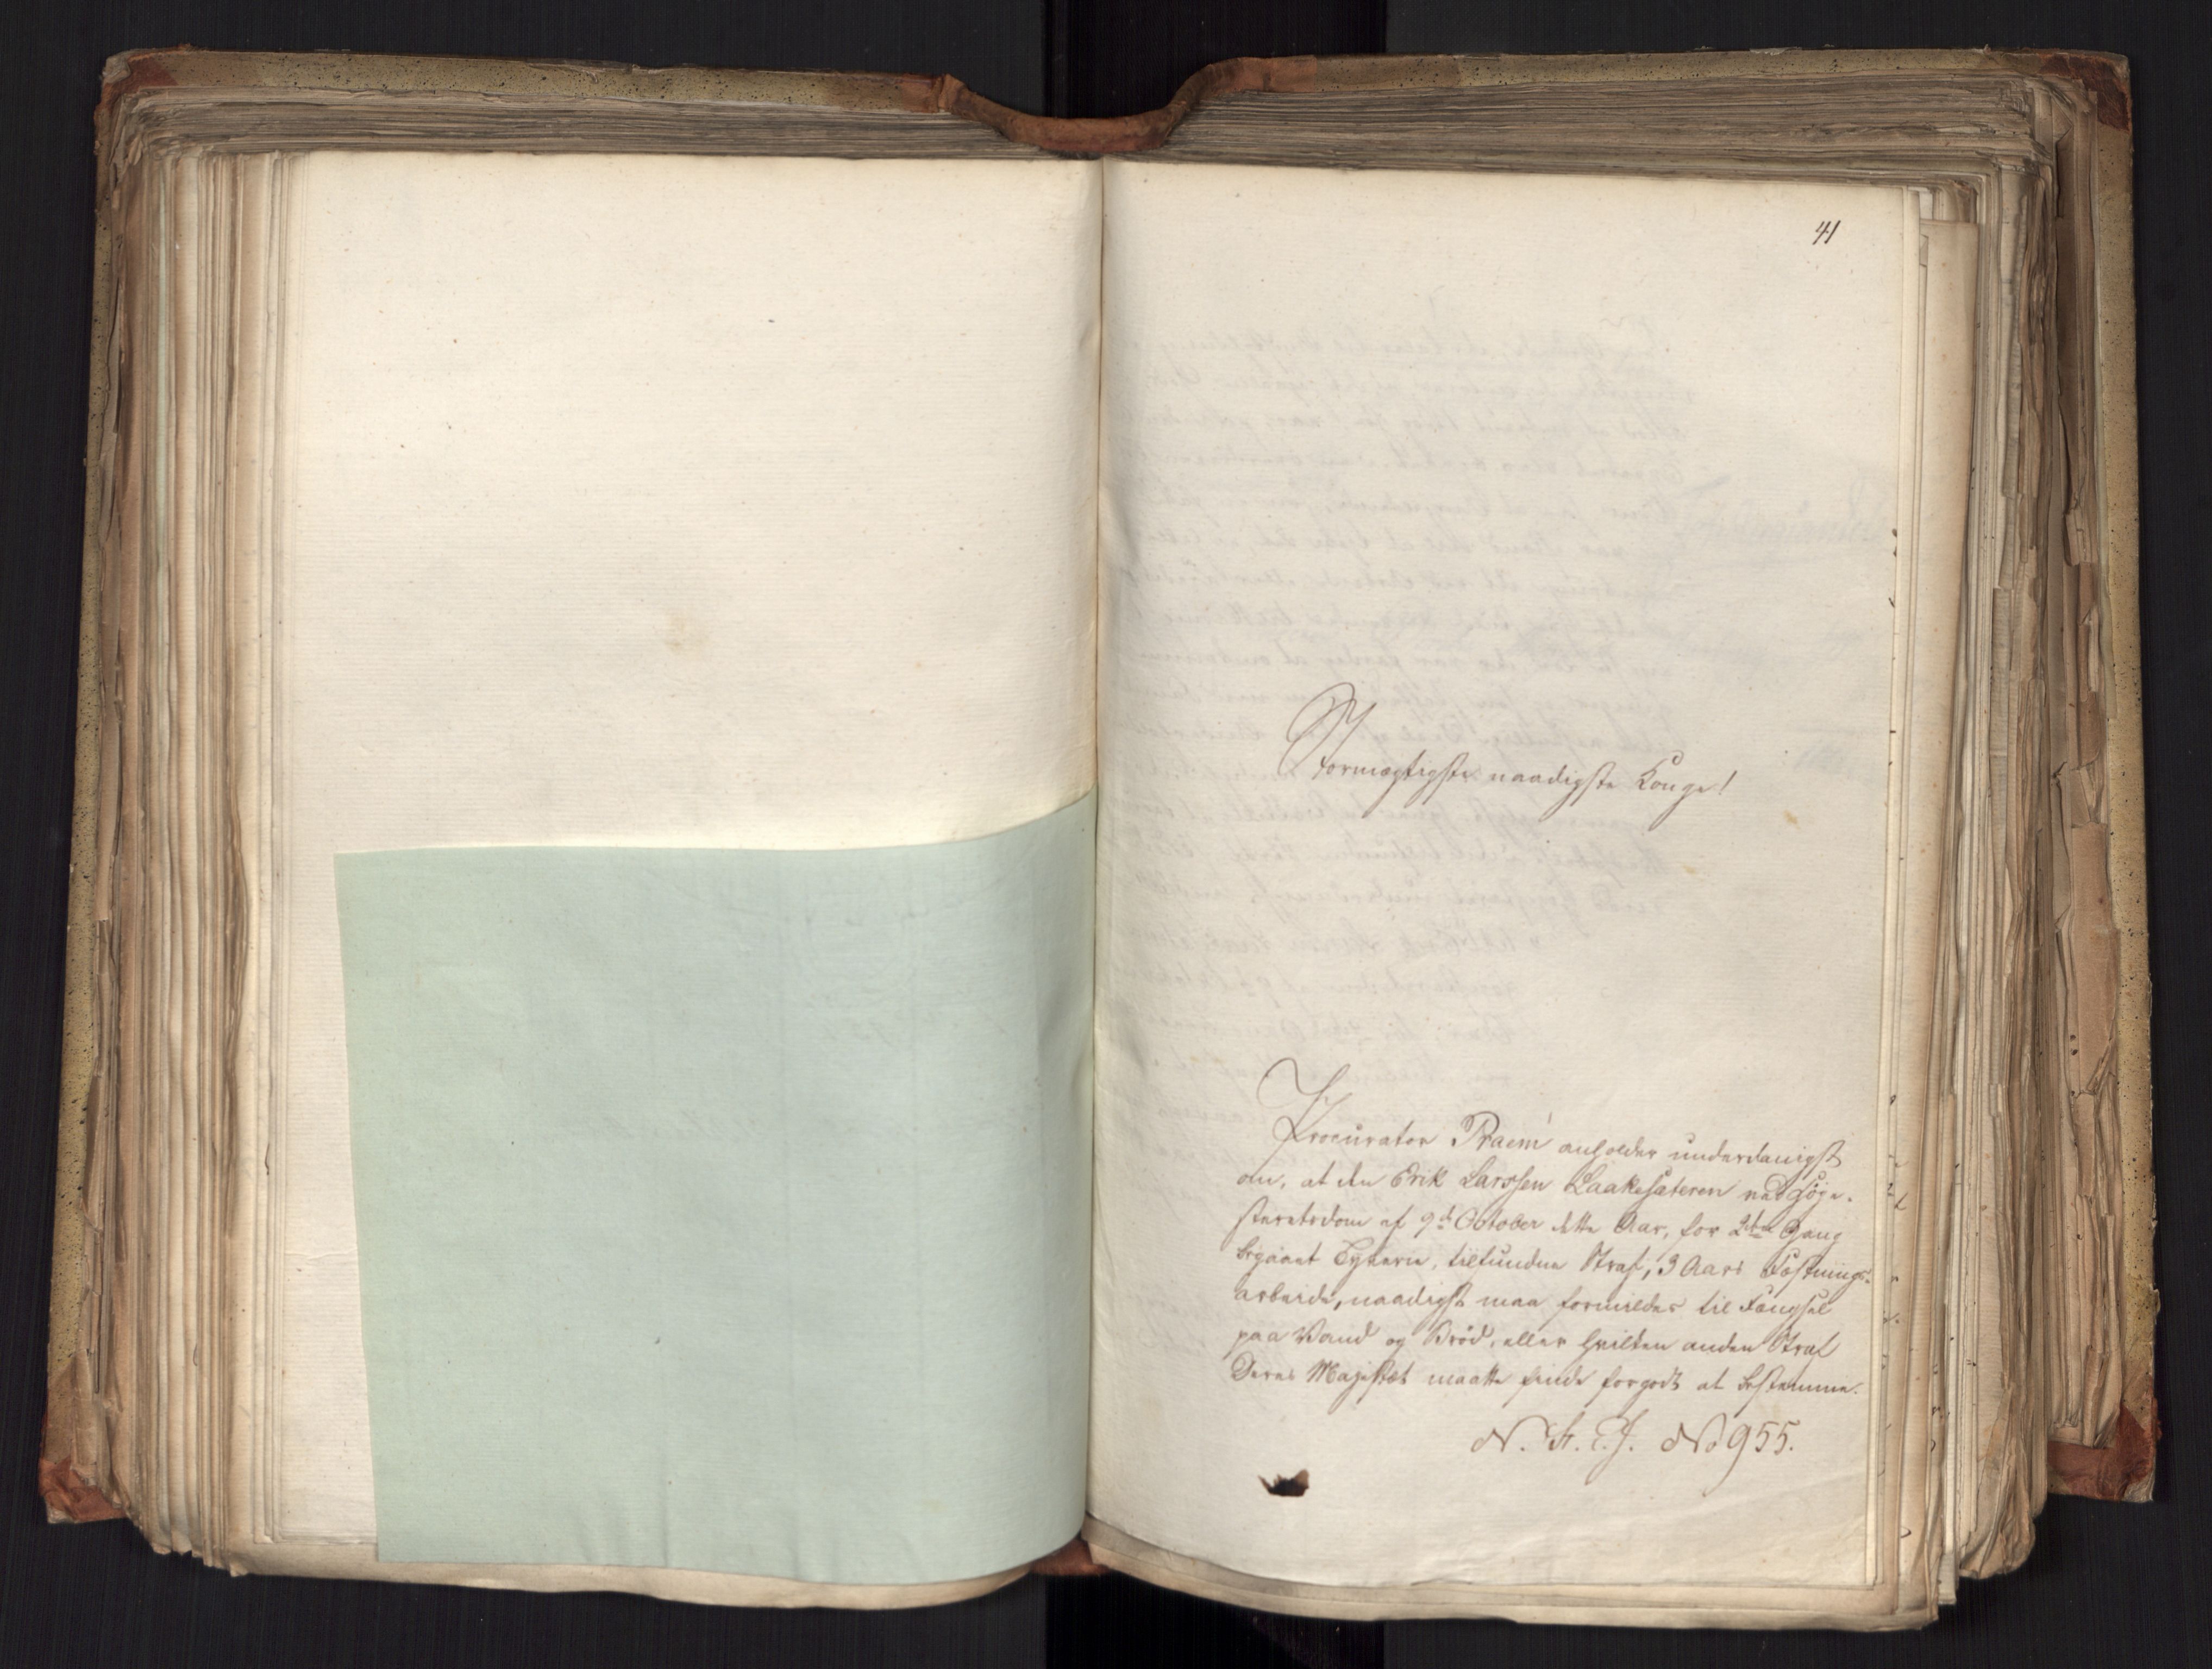 41
Stormægtigste naadigste Konge!
Procurator Praem anholder underdanigst
om, at den Erik Larssen Laakesæteren ved Høie-
steretsdom af 9d October dette Aar, for 2den Gang
begaaet Tyverie, tilfundne Straf, 3 Aars Fæstnings-
arbeide, naadigst maa formildes til Fængsel
paa Vand og Brød, eller hvilken anden Straf
Deres Majestæt maatte finde forgodt at bestemme.
No 955.